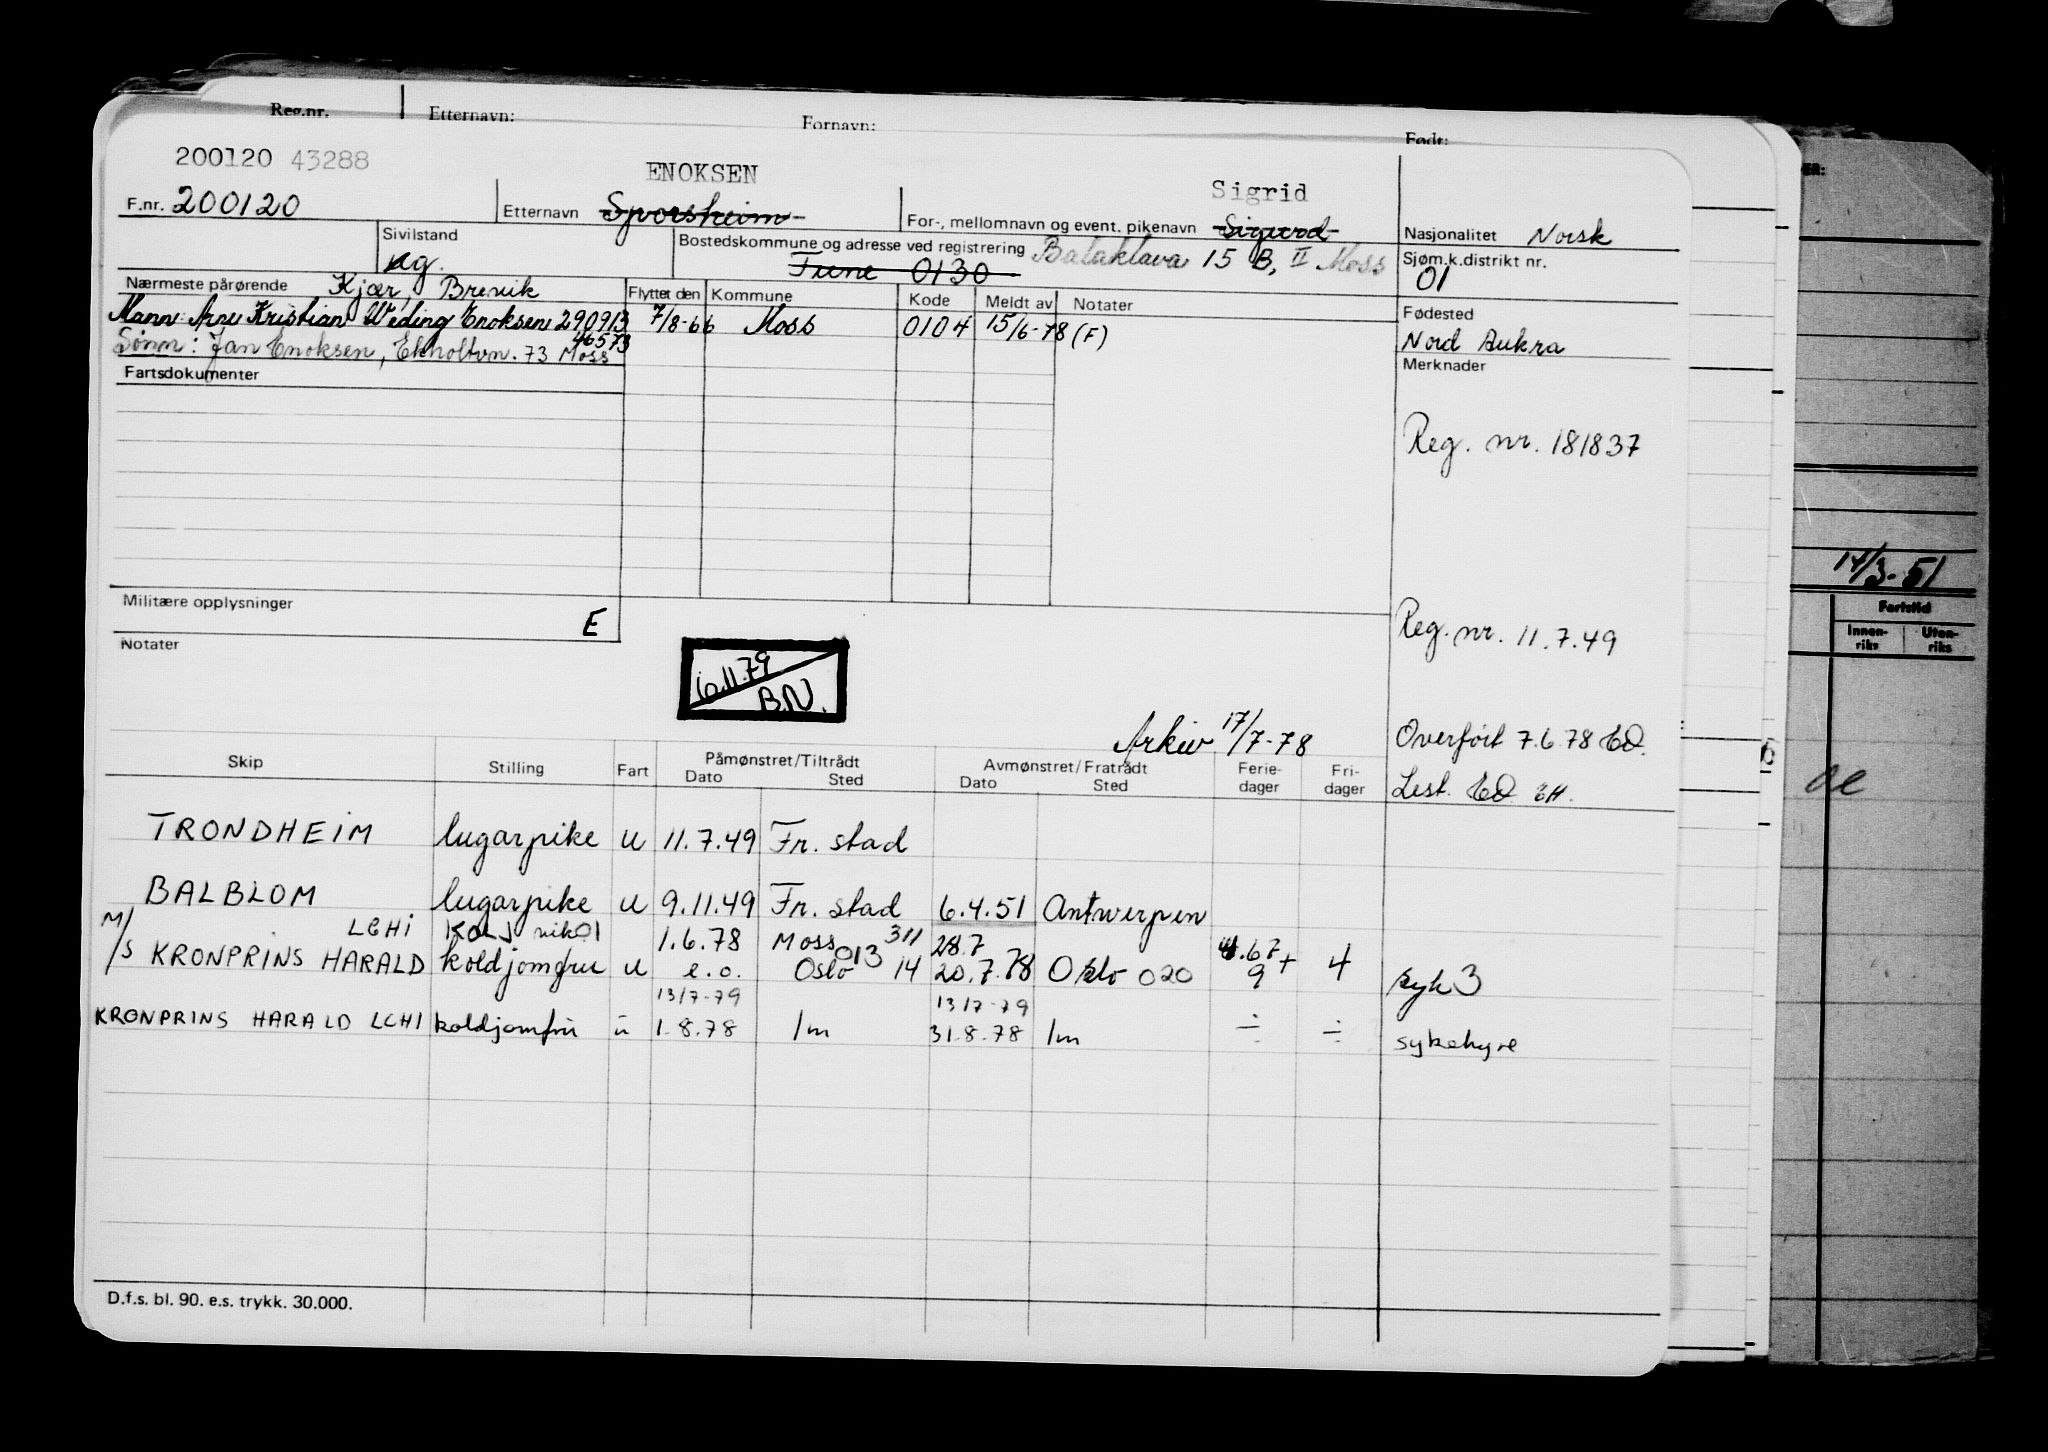 Reg.nr. Etternavn: Fornavn: Født:
200120 43288 ENOKSEN Sigrid
F.nr. 200120 Etternavn Sporsheim For-, mellomnavn og event. pikenavn Sigurd Nasjonalitet Norsk
Sivilstand ug. Bostedskommune og adresse ved registrering Tune 0130 Balaklava 15 B, II Moss Sjøm.k.distrikt nr. 01
Nærmeste pårørende Kjær, Brevik Flyttet den Kommune Kode Meldt av Notater Fødested
Mann: Arne Kristian Weding Enoksen 290913 46573 7/8-66 Moss 0104 15/6-78 (F) Nord Aukra
Sønn: Jan Enoksen, Ekholtvn. 73 Moss
Fartsdokumenter Merknader
Reg. nr. 181837
14/3-51
Militære opplysninger E
Fartstid
Innen-riks Uten-riks
Reg. nr. 11.7.49
Notater
10.11.79
B.N.
Arkiv 17/7-78 Overført 7.6.78 ED.
Skip Stilling Fart Påmønstret/Tiltrådt Dato Sted Avmønstret/Fratrådt Dato Sted Ferie-dager Fri-dager Lest. ED EH.
TRONDHEIM lugarpike u 11.7.49 Fr. stad
BALBLOM lugarpike u 9.11.49 Fr. stad 6.4.51 Antwerpen
LCHI 1.6.78 Moss 311 28.7
M/S KRONPRINS HARALD koldjomfru u e.o. Oslo 013 14 20.7.78 Oslo 020 9+ 4 syk 3
13/7-79 13/7-79
KRONPRINS HARALD LCHI koldjomfru u 1.8.78 lm 31.8.78 lm ÷ ÷ sykehyre
D.f.s. bl. 90. e.s. trykk. 30.000.